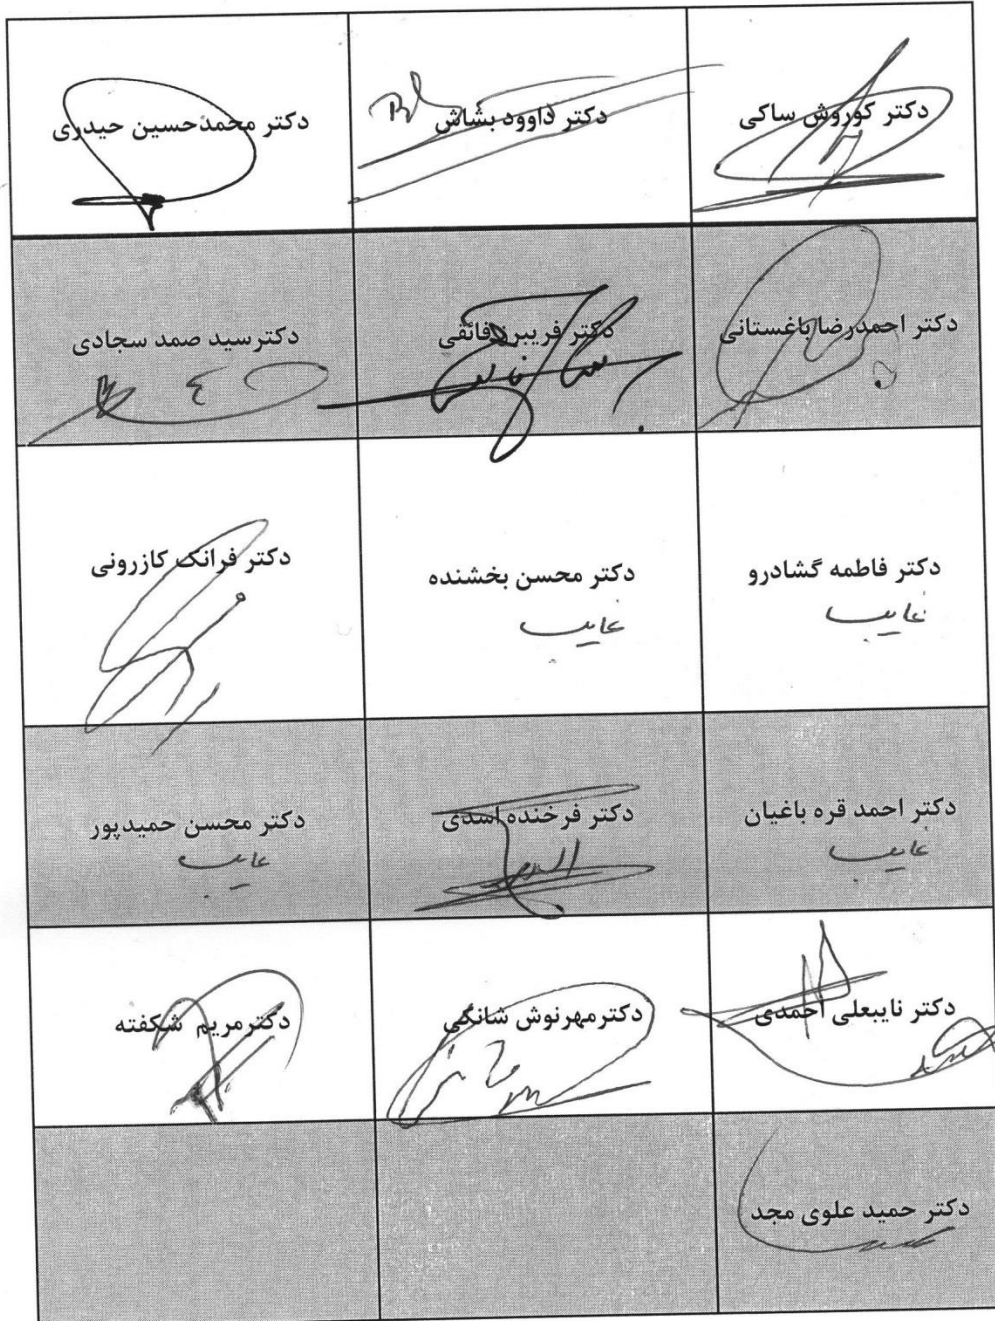 دکتر کوروش ساکی
دکتر داوود بشاش
دکتر محمدحسین حیدری
دکتر احمدرضا باغستانی
دکتر فریبرز فائقی
دکترسید صمد سجادی
دکتر فاطمه گشادرو
غایب
دکتر محسن بخشنده
غایب
دکتر فرانک کازرونی
دکتر احمد قره باغیان
غایب
دکتر فرخنده اسدی
دکتر محسن حمیدپور
غایب
دکتر نایبعلی احمدی
دکترمهرنوش شانگی
دکترمریم شکفته
دکتر حمید علوی مجد